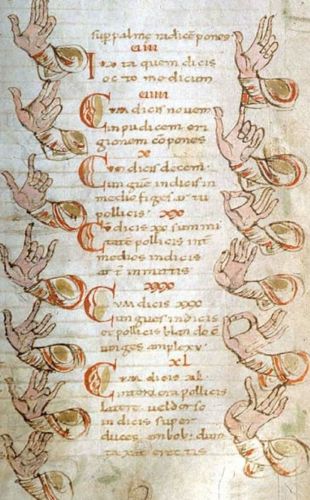 suppalme radice pones
Iuxta quem dicis
octo medium
Cum dicis novem
impudicem eri
gione conpones
x
Cum dicis decem
unguē indicis in
medio figes artu
pollicis xxx
dicis xx summi
tatē pollicis int
medios indicis
xxxx
Cum dicis xxx
ungues indicis
pollicis blando cō
iunges amplexu
xl
Cum dicis
interiora pollicis
latere vel dorso
indicis super
duces ambob; dum
taxat erectis